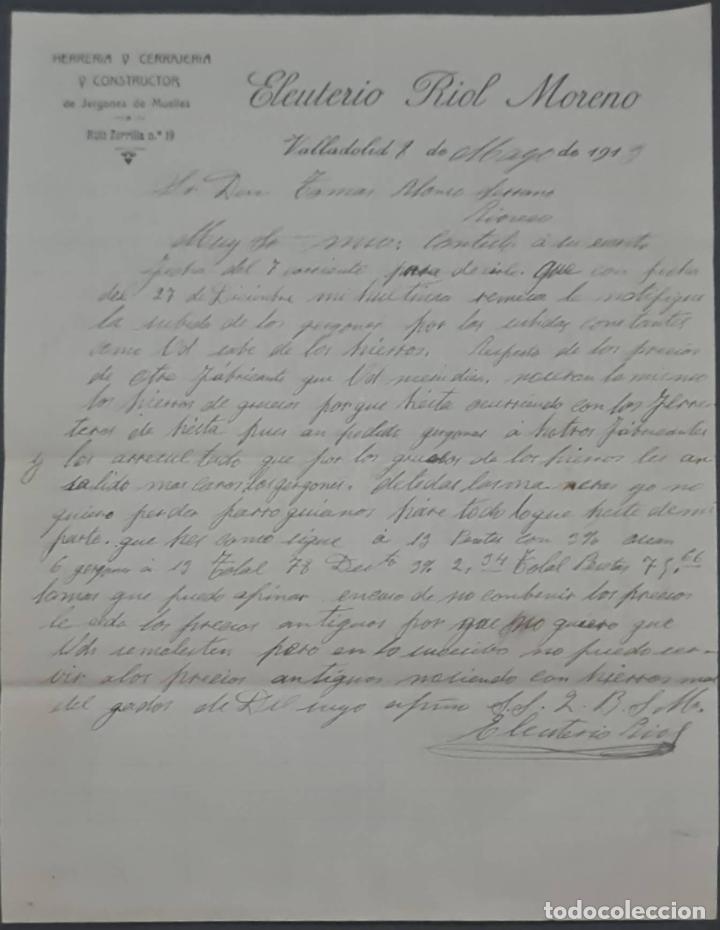 HERRERIA Y CERRAJERIA
Y CONSTRUCTOR
de Jergones de Muelles
Ruiz Zorrilla n.º 19
Eleuterio Riol Moreno
Valladolid 8 de Mayo de 191
Sr Don Tomas Alonso Serrano
Rioseco
Muy Sr mio: Contesto á su escrito
fecha del 7 corriente para decirle que con fecha
del 27 de Diciembre mi hultima remesa le notifique
la subida de los gergones por las subidas constantes
como Vd sabe de los hierros. Respeto de los precios
de otro Fabricante que Vd me indica. no seran lo mismo
los hierros de gruesos porque hesta ocurriendo con los Ferre
teros de hesta pues an pedido gergones á hotros Fabricantes
y les a rresultado que por los gruesos de los hierros les an
salido mas caros los gergones. de todas las maneras yo no
quiero perder parroquianos hare todo lo que heste de mi
parte. que hes como sigue á 13 Pesetas con 3% osean
6 gergones á 13 Total 78 Desto 3% 2,34 Total Pesetas 75,66
lo mas que puedo afinar. en caso de no combenir los precios
le edo los precios antiguos por que no quiero que
Vds se molesten pero en lo sucesibo no puedo ser-
vir a los precios antiguos no siendo con hierros mas
del gados de Del suyo afmo S.S. Q. B. S. M.
Eleuterio Riol
todocoleccion
todocoleccion.net